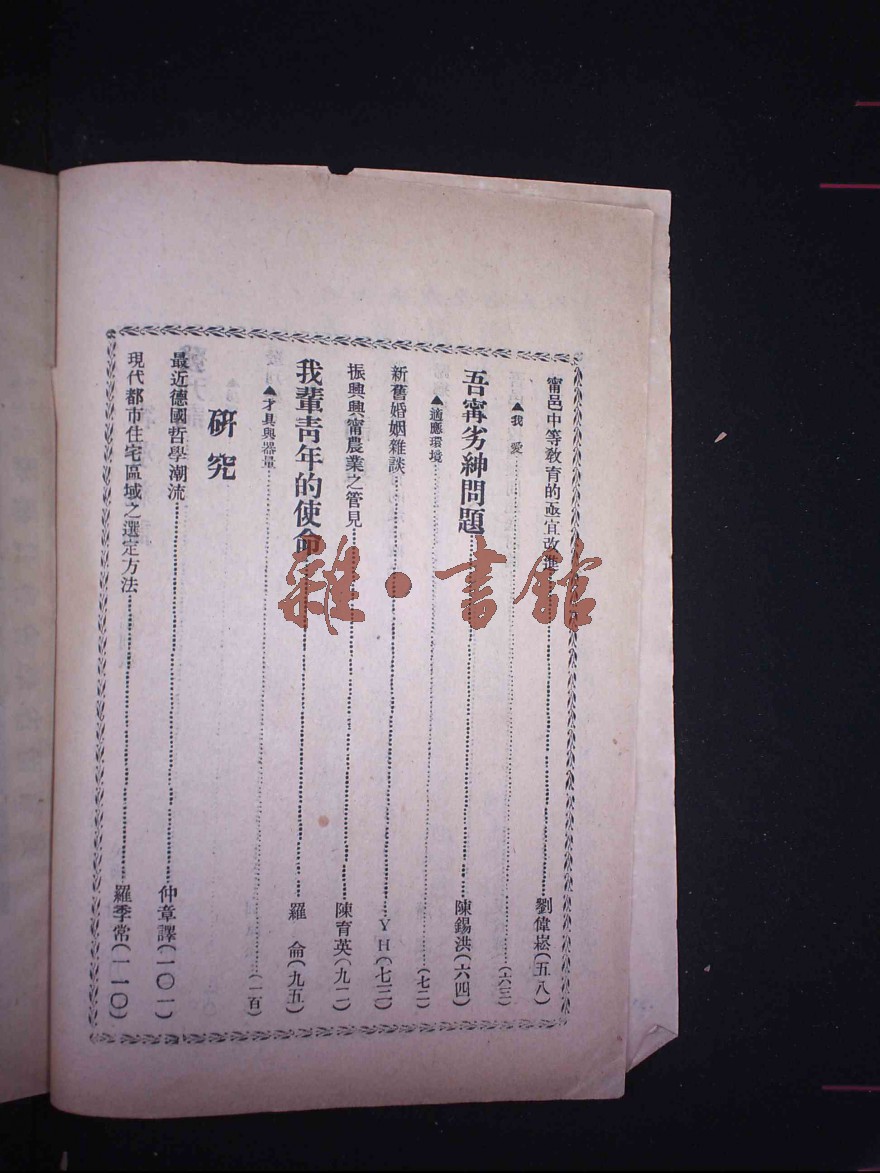 甯邑中等教育的亟宜改進……劉偉崧(五八)
▲我　愛……(六三)
吾甯劣紳問題……陳錫洪(六四)
▲適應環境……(七二)
新舊婚姻雜談……YH(七三)
振興興甯農業之管見……陳育英(九二)
我輩青年的使命……羅　侖(九五)
▲才具與器量……(一百)
研究
最近德國哲學潮流……仲章譯(一〇一)
現代都市住宅區域之選定方法……羅季常(一一〇)
雜·書館